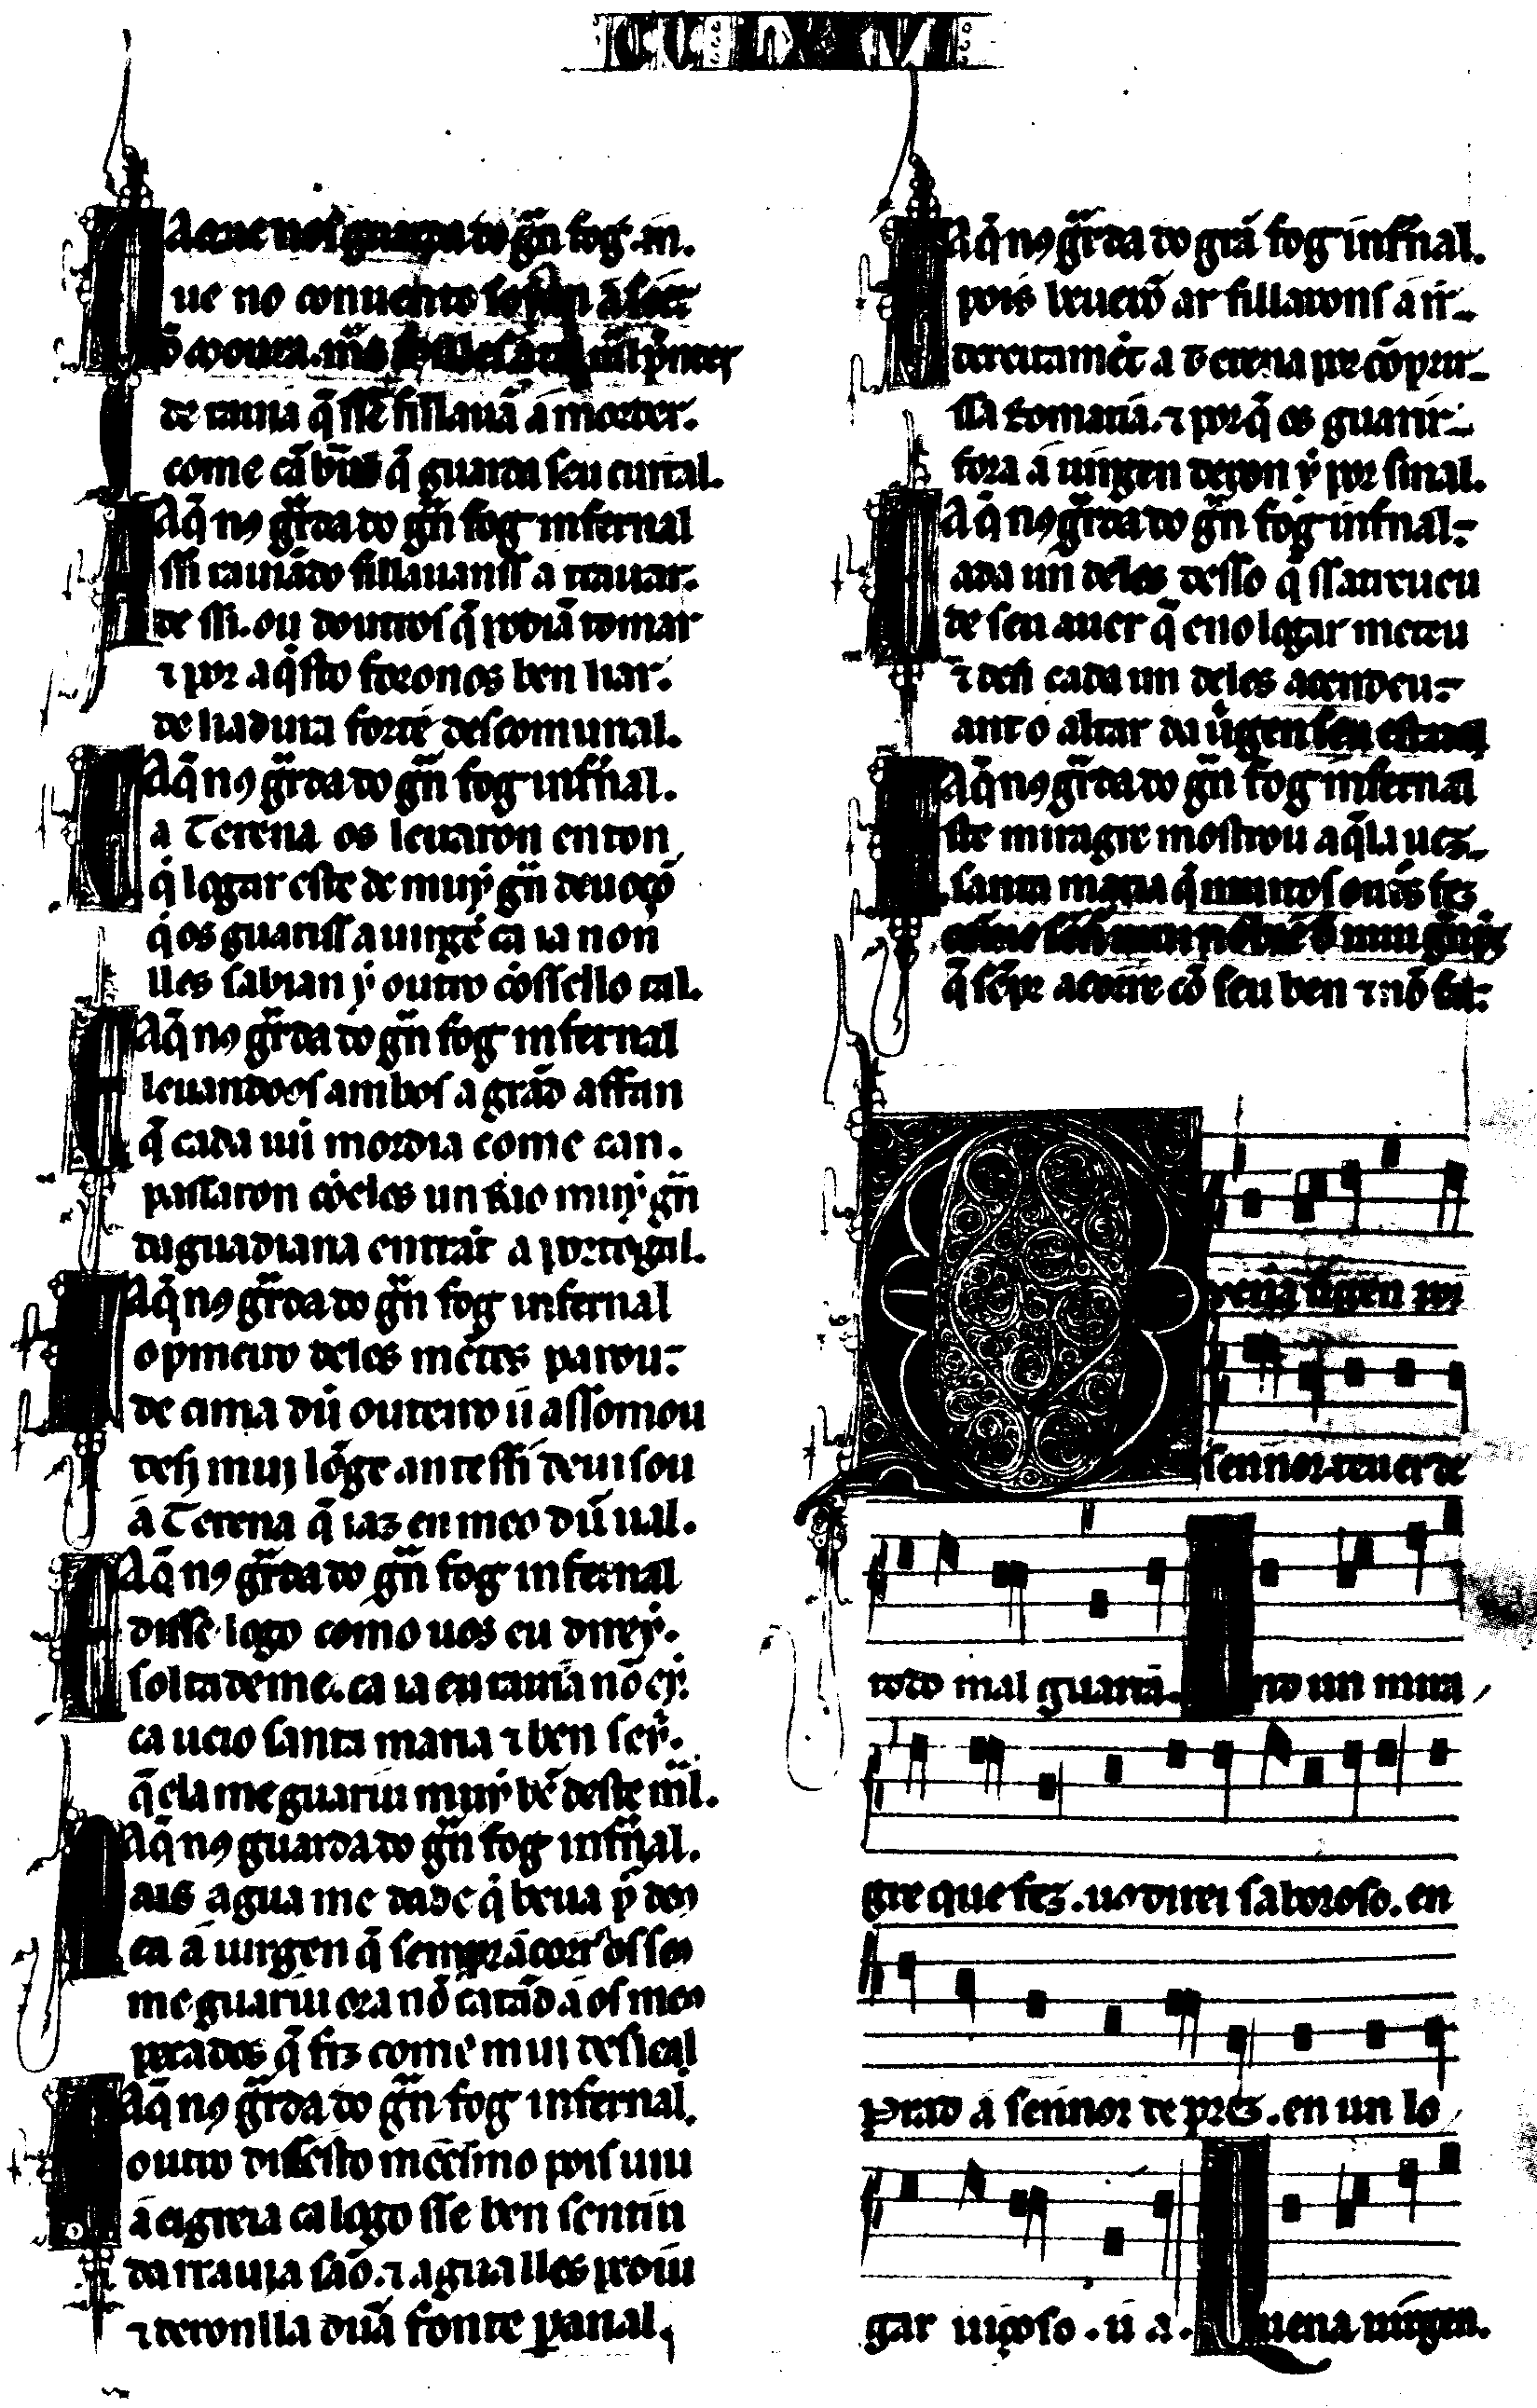 A que nos guarda do gn̄ fog in.
ue no conuento
de rauia q̄ sse fillauā a morder.
come cā q̄ guarda seu curral.
A q̄ nꝯ gr̄da do gn̄ fog infernal
ssi rauiādo fillauanss a trauar.
de ssi. ou doutros q̄ podiā tomar
⁊ por aq̇sto foronos ben liar.
de liadura forte descomunal.
A q̄ nꝯ gr̄da do gn̄ fog inf̄nal.
a Terena os leuaron enton
q̇ logar este de muy gn̄ deuoçō
q̇ os guariss a uirgē ca ia non
lles sabian y outro cōssello tal.
A q̄ nꝯ gr̄da do gn̄ fog infernal
leuandoos ambos a grād affan
q̄ cada un̄ mordia come can.
passaron cō eles un Rio muy gn̄
daguadiana entrāt a portegal.
A q̄ nꝯ gr̄da do gn̄ fog infernal
o pmeiro deles mētes parou:
de cima dū outeiro u assomou
desy muy lōge ante ssi deuisou
a Terena q̄ iaz en meo dū ual.
A q̄ nꝯ gr̄da do gn̄ fog infernal
disse logo como uos eu direy.
soltademe. ca ia eu rauia nō ey.
ca ueio santa maria ⁊ ben sey.
q̄ ela me guariu muy bē deste m̄l.
A q̄ nꝯ guarda do gn̄ fog inf̄nal.
ais agua me dade q̇ beua p̄ dꝯ
ca a uirgen q̄ sempr acorr os seꝯ
me guariu ora nō catād a os meꝯ
pecados q̄ fiz come mui desleal
A q̄ nꝯ gr̄da do gn̄ fog infernal.
outro diss esto meesmo pois uiu
a eigreia ca logo sse ben sentiu
da rrauia são. ⁊ agua lles pediu
⁊ deronlla dūa fonte peranal.
A q̄ nꝯ gr̄da do grā fog inf̄nal.
pois beuerō ar fillarons a ir
dereitamēt a terena pe cōprir
ssa Romaria. ⁊ porq̄ os guarir
fora a uirgen deron y por sinal.
A q̄ nꝯ gr̄da do gn̄ fog inf̄nal:
ada un deles desso q̄ ss atreueu
de seu auer q̄ eno logar meteu
⁊ desi cada un deles acendeu:
ant o altar da uirgen seu estadal
A q̄ nꝯ gr̄da do gn̄ fog infernal
ste miragre mostrou aq̄la uez
santa maria q̇ muitos outs fez
q̄ sēpr acorre cō seu ben ⁊ nō fal:
uena uirgen
sennor. te uer de
todo mal guarrā. no un mira
gre que fez. uꝯ direi saboroso. en
Prad a sennor de prez. en un lo
gar uiçoso. u a. Quena uirgen.